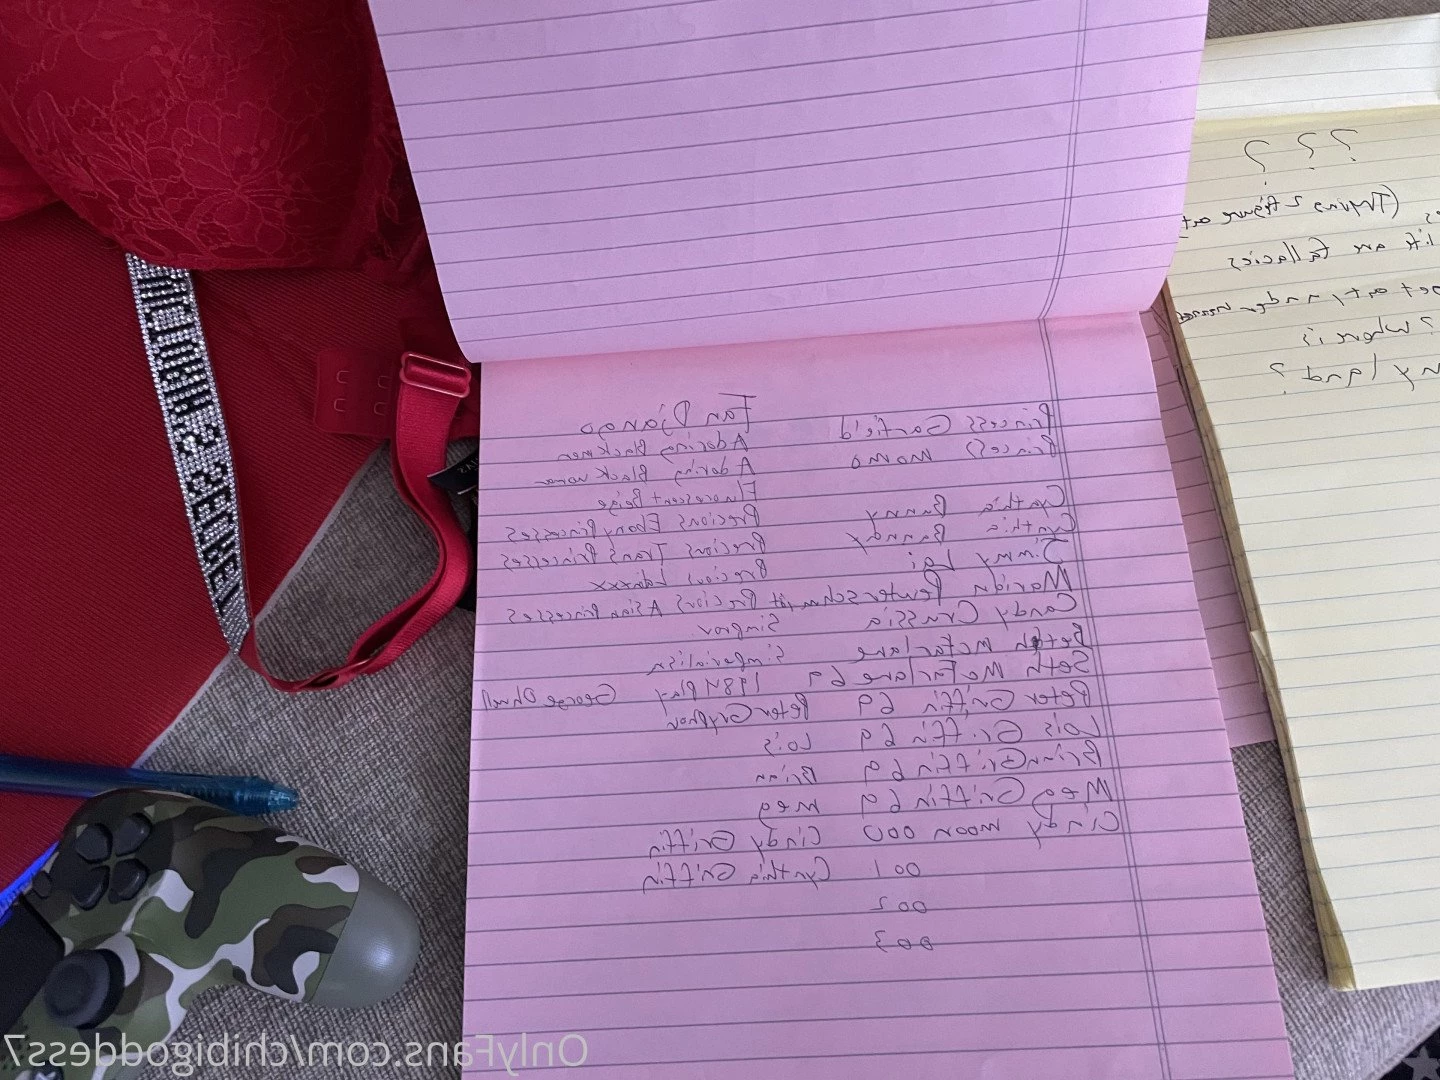 Princess Garfield Fan Django
Princess momo Adoring Black men
Adoring Black women
Fluorescent Beige
Cynthia Bunny Precious Ebony Princesses
Cynthia Bunndy Precious Trans Princesses
Jimmy Lai Precious
Maridn Precious Asian Princesses
Candy Crussia Simprov
McFarlane Simperialism
Seth MacFarlane 69 1984 Play George Orwell
Peter Griffin 69 Peter Gryphon
Lois Griffin 69 Lois
Briann Griffin 69 Brian
Meg Griffin 69 Meg
Cindy moon 000 Cindy Griffin
001 Cynthia Griffin
002
003
? ? ?
(Trying 2 figure out
lit are fallacies
out, under
? where is
my land ?
OnlyFans.com/chibigoddess7